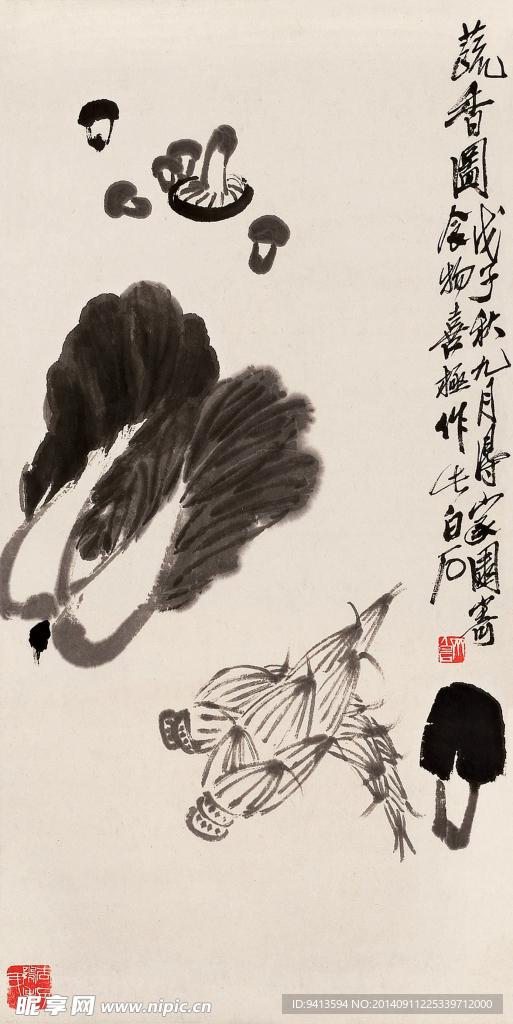 蔬香圖
戊子秋九月得家園寄
食物喜極作此白石
昵享网 www.nipic.cn
ID:9413594 NO:20140911225339712000